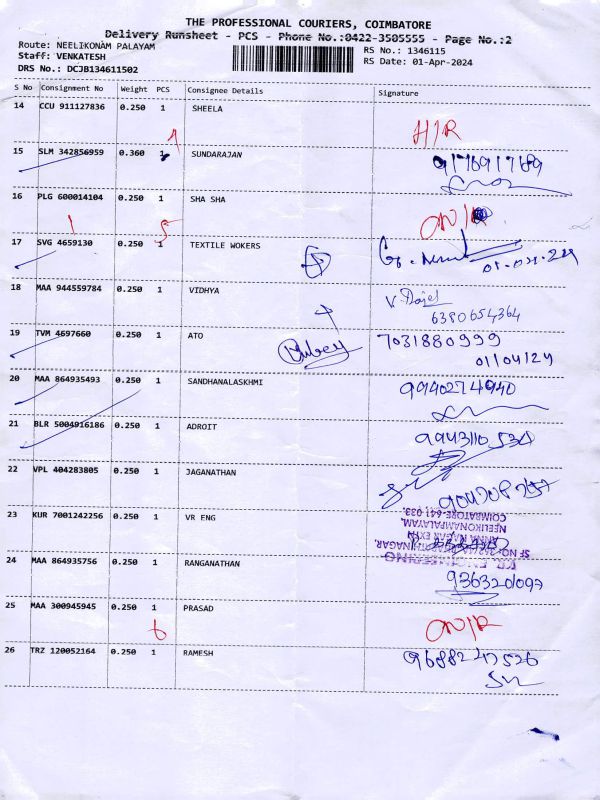 THE PROFESSIONAL COURIERS, COIMBATORE
Delivery Runsheet - PCS - Phone No.:0422-3505555 - Page No.:2
Route: NEELIKONAM PALAYAM
RS No.: 1346115
Staff: VENKATESH
RS Date: 01-Apr-2024
DRS No.: DCJB134611502
S No Consignment No Weight PCS Consignee Details Signature
14 CCU 911127836 0.250 1 SHEELA
H/R
15 SLM 342856959 0.360 1 SUNDARAJAN 9176917689
16 PLG 600014104 0.250 1 SHA SHA
1 5
17 SVG 4659130 0.250 1 TEXTILE WOKERS
01-04-24
18 MAA 944559784 0.250 1 VIDHYA V.
6380654364
19 TVM 4697660 0.250 1 ATO 7031880999
01/04/24
20 MAA 864935493 0.250 1 SANDHANALASKHMI 9940274940
21 BLR 5004916186 0.250 1 ADROIT 9943110534
22 VPL 404283805 0.250 1 JAGANATHAN
23 KUR 7001242256 0.250 1 VR ENG
NEELIKONAMPALAYAM,
COIMBATORE-641 033.
24 MAA 864935756 0.250 1 RANGANATHAN
25 MAA 300945945 0.250 1 PRASAD
6
26 TRZ 120052164 0.250 1 RAMESH 9688247526